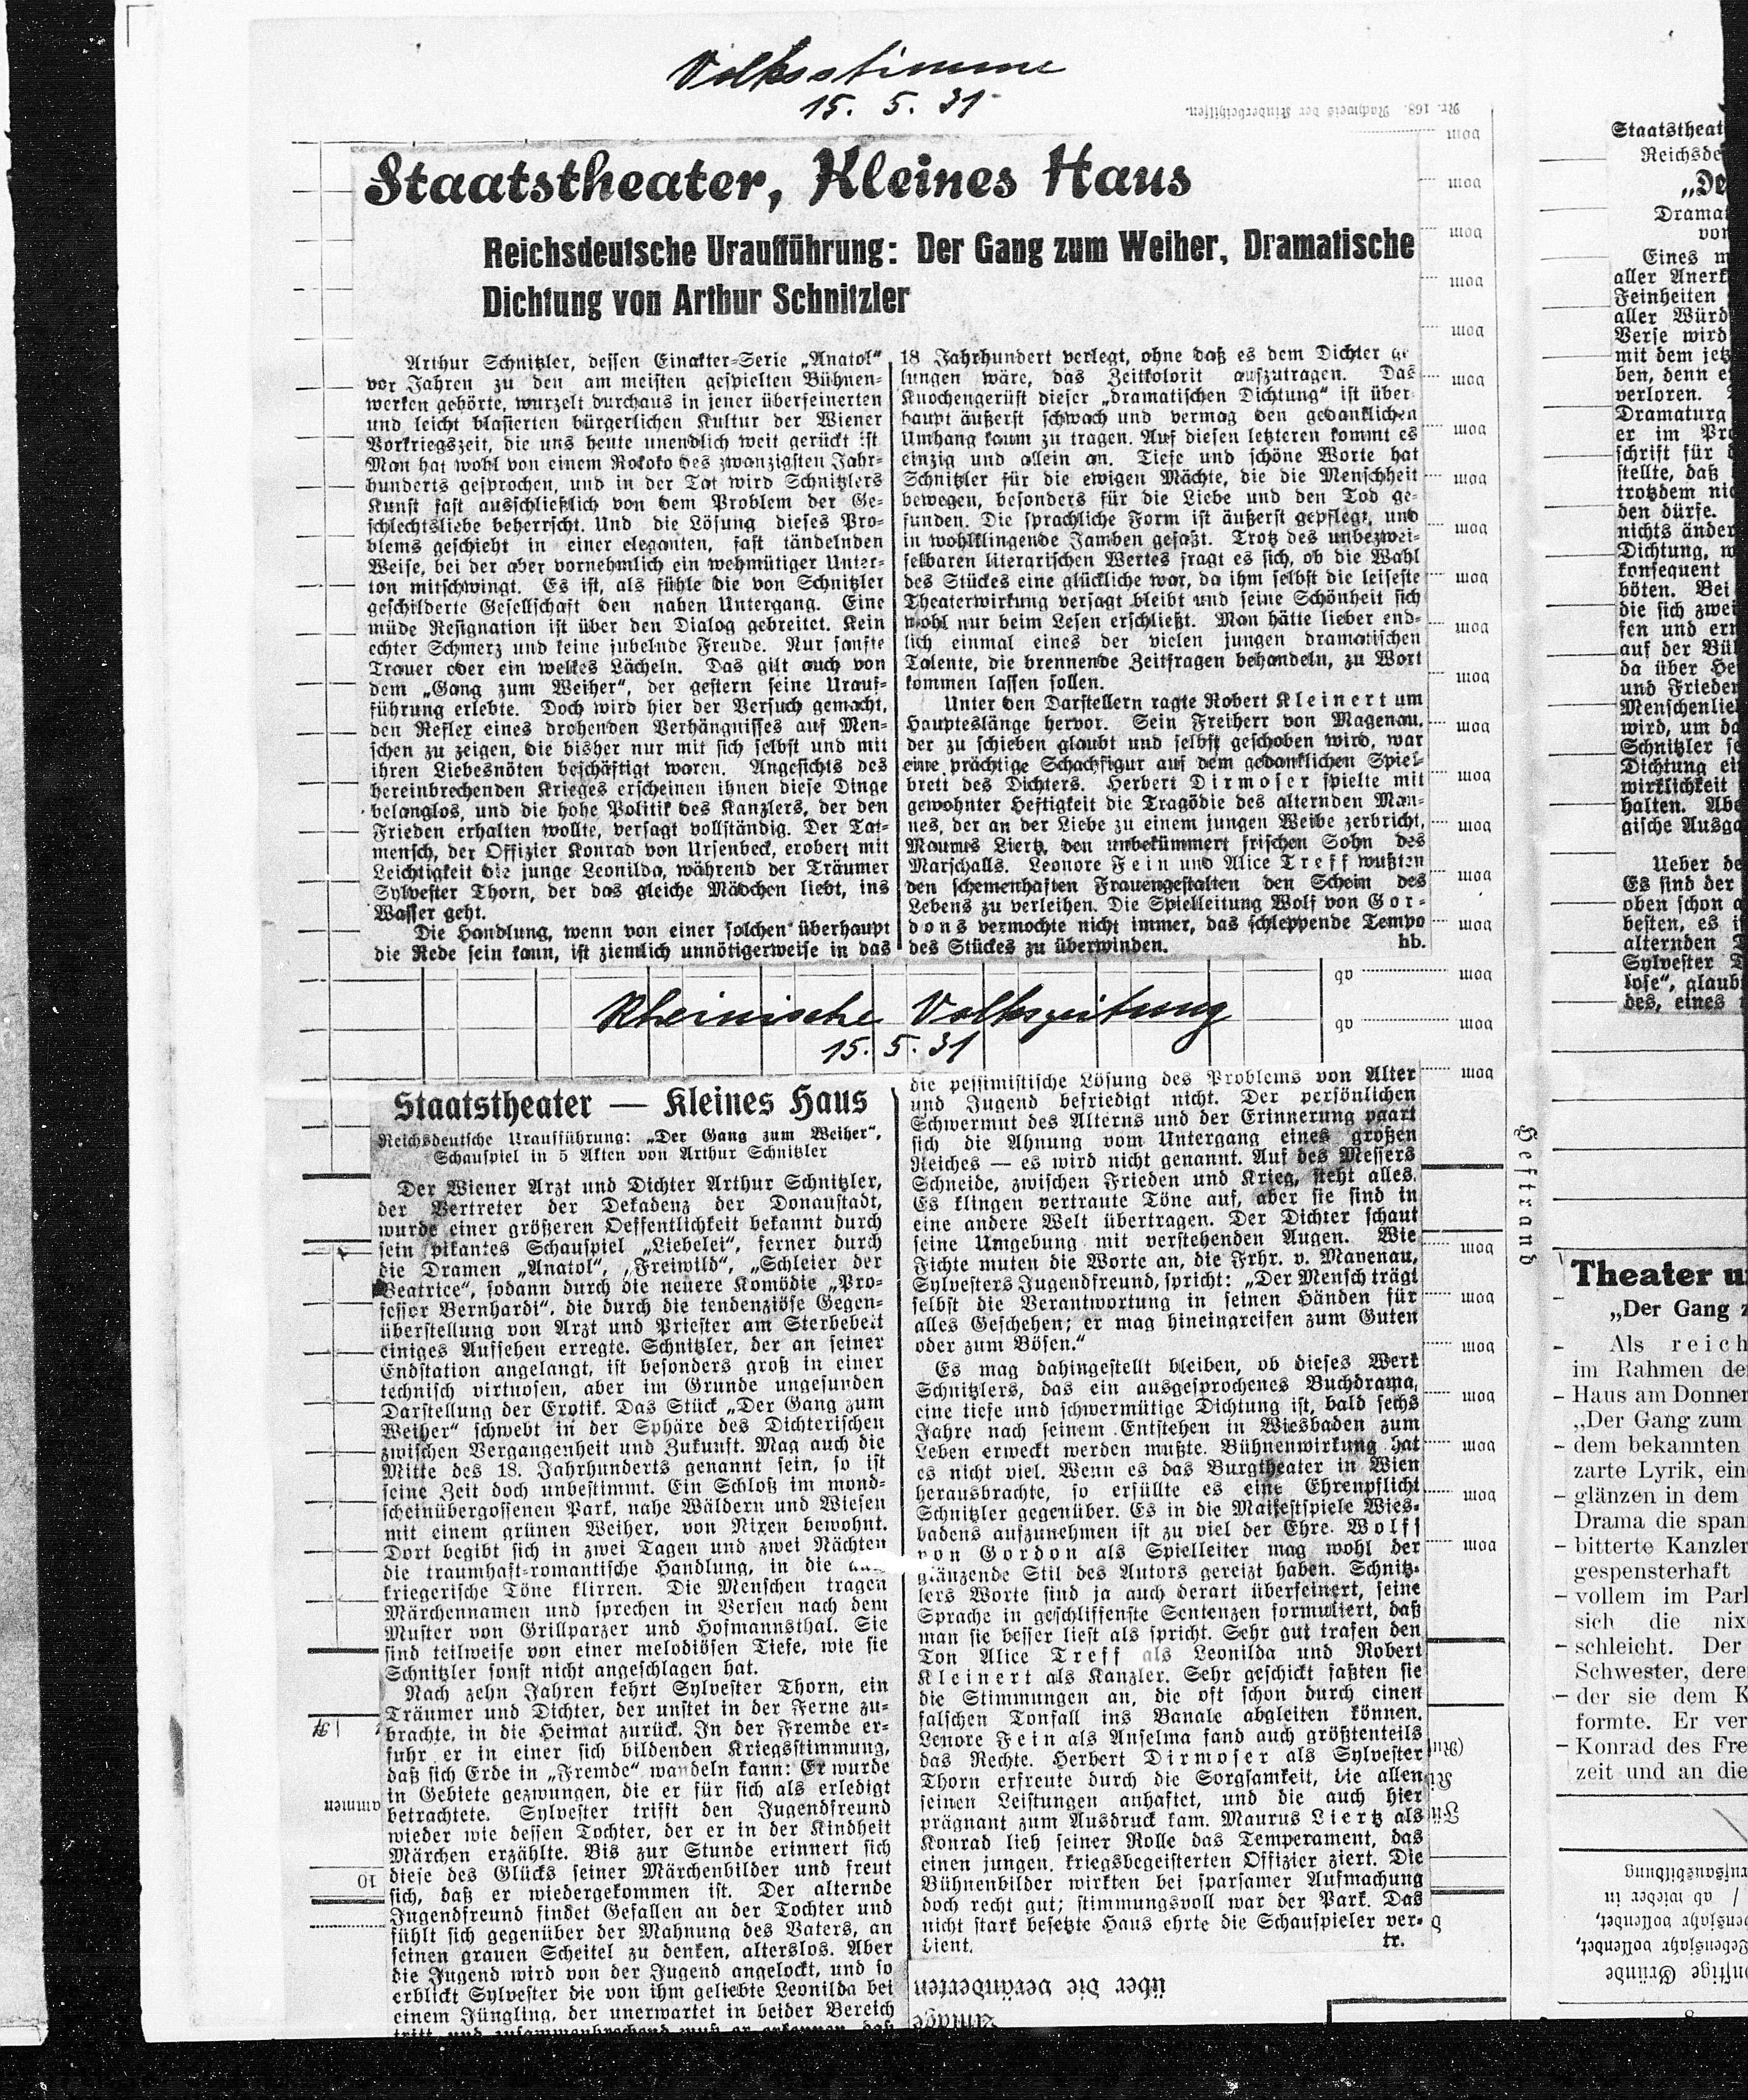 Volksstimme
15. 5. 31
Nr. 168. Nachweis der Kinderbeihilfen.
Staatstheater, Kleines Haus
Reichsdeutsche Uraufführung: Der Gang zum Weiher, Dramatische
Dichtung von Arthur Schnitzler
Arthur Schnitzler, dessen Einakter-Serie „Anatol"
vor Jahren zu den am meisten gespielten Bühnen-
werken gehörte, wurzelt durchaus in jener überfeinerten
und leicht blasierten bürgerlichen Kultur der Wiener
Vorkriegszeit, die uns heute unendlich weit gerückt ist
Man hat wohl von einem Rokoko des zwanzigsten Jahr-
hunderts gesprochen, und in der Tat wird Schnitzlers
Kunst fast ausschließlich von dem Problem der Ge-
schlechtsliebe beherrscht. Und die Lösung dieses Pro-
blems geschieht in einer eleganten, fast tändelnden
Weise, bei der aber vornehmlich ein wehmütiger Unter-
ton mitschwingt. Es ist, als fühle die von Schnitzler
geschilderte Gesellschaft den nahen Untergang. Eine
müde Resignation ist über den Dialog gebreitet. Kein
echter Schmerz und keine jubelnde Freude. Nur sanfte
Trauer oder ein welkes Lächeln. Das gilt auch von
dem „Gang zum Weiher", der gestern seine Urauf-
führung erlebte. Doch wird hier der Versuch gemacht,
den Reflex eines drohenden Verhängnisses auf Men-
schen zu zeigen, die bisher nur mit sich selbst und mit
ihren Liebesnöten beschäftigt waren. Angesichts des
hereinbrechenden Krieges erscheinen ihnen diese Dinge
belanglos, und die hohe Politik des Kanzlers, der den
Frieden erhalten wollte, versagt vollständig. Der Tat-
mensch, der Offizier Konrad von Ursenbeck, erobert mit
Leichtigkeit die junge Leonilda, während der Träumer
Sylvester Thorn, der das gleiche Mädchen liebt, ins
Wasser geht.
Die Handlung, wenn von einer solchen überhaupt
die Rede sein kann, ist ziemlich unnötigerweise in das
18 Jahrhundert verlegt, ohne daß es dem Dichter ge
lungen wäre, das Zeitkolorit auszutragen. Das
Knochengerüst dieser „dramatischen Dichtung" ist über-
haupt äußerst schwach und vermag den gedanklichen
Umhang kaum zu tragen. Auf diesen letzteren kommt es
einzig und allein an. Tiefe und schöne Worte hat
Schnitzler für die ewigen Mächte, die die Menschheit
bewegen, besonders für die Liebe und den Tod ge-
funden. Die sprachliche Form ist äußerst gepflegt, und
in wohlklingende Jamben gefaßt. Trotz des unbezwei-
felbaren literarischen Wertes fragt es sich, ob die Wahl
des Stückes eine glückliche war, da ihm selbst die leiseste
Theaterwirkung versagt bleibt und seine Schönheit sich
wohl nur beim Lesen erschließt. Man hätte lieber end-
lich einmal eines der vielen jungen dramatischen
Talente, die brennende Zeitfragen behandeln, zu Wort
kommen lassen sollen.
Unter den Darstellern ragte Robert Kleinert um
Haupteslänge hervor. Sein Freiherr von Magenau,
der zu schieben glaubt und selbst geschoben wird, war
eine prächtige Schachfigur auf dem gedanklichen Spiel-
brett des Dichters. Herbert Dirmoser spielte mit
gewohnter Heftigkeit die Tragödie des alternden Man-
nes, der an der Liebe zu einem jungen Weibe zerbricht,
Maurus Liertz, den unbekümmert frischen Sohn des
Marschalls. Leonore Fein und Alice Treff wußten
den schemenhaften Frauengestalten den Schein des
Lebens zu verleihen. Die Spielleitung Wolf von Gor-
dons vermochte nicht immer, das schleppende Tempo
des Stückes zu überwinden. hb.
Rheinische Volkszeitung
15. 5. 31
Staatstheater — Kleines Haus
Reichsdeutsche Uraufführung: „Der Gang zum Weiher",
Schauspiel in 5 Akten von Arthur Schnitzler
Der Wiener Arzt und Dichter Arthur Schnitzler,
der Vertreter der Dekadenz der Donaustadt,
wurde einer größeren Oeffentlichkeit bekannt durch
sein pikantes Schauspiel „Liebelei", ferner durch
die Dramen „Anatol", „Freiwild", „Schleier der
Beatrice", sodann durch die neuere Komödie „Pro-
fessor Bernhardi", die durch die tendenziöse Gegen-
überstellung von Arzt und Priester am Sterbebett
einiges Aufsehen erregte. Schnitzler, der an seiner
Endstation angelangt, ist besonders groß in einer
technisch virtuosen, aber im Grunde ungesunden
Darstellung der Erotik. Das Stück „Der Gang zum
Weiher" schwebt in der Sphäre des Dichterischen
zwischen Vergangenheit und Zukunft. Mag auch die
Mitte des 18. Jahrhunderts genannt sein, so ist
seine Zeit doch unbestimmt. Ein Schloß im mond-
scheinübergossenen Park, nahe Wäldern und Wiesen
mit einem grünen Weiher, von Nixen bewohnt.
Dort begibt sich in zwei Tagen und zwei Nächten
die traumhaft-romantische Handlung, in die
kriegerische Töne klirren. Die Menschen tragen
Märchennamen und sprechen in Versen nach dem
Muster von Grillparzer und Hofmannsthal. Sie
sind teilweise von einer melodiösen Tiefe, wie sie
Schnitzler sonst nicht angeschlagen hat.
Nach zehn Jahren kehrt Sylvester Thorn, ein
Träumer und Dichter, der unstet in der Ferne zu-
brachte, in die Heimat zurück. In der Fremde er-
fuhr er in einer sich bildenden Kriegsstimmung,
daß sich Erde in „Fremde" wandeln kann: Er wurde
in Gebiete gezwungen, die er für sich als erledigt
betrachtete. Sylvester trifft den Jugendfreund
wieder wie dessen Tochter, der er in der Kindheit
Märchen erzählte. Bis zur Stunde erinnert sich
diese des Glücks seiner Märchenbilder und freut
sich, daß er wiedergekommen ist. Der alternde
Jugendfreund findet Gefallen an der Tochter und
fühlt sich gegenüber der Mahnung des Vaters, an
seinen grauen Scheitel zu denken, alterslos. Aber
die Jugend wird von der Jugend angelockt, und so
erblickt Sylvester die von ihm geliebte Leonilda bei
einem Jüngling, der unerwartet in beider Bereich
tritt und zusammenbrechend muß er erkennen, daß
die pessimistische Lösung des Problems von Alter
und Jugend befriedigt nicht. Der persönlichen
Schwermut des Alterns und der Erinnerung paart
sich die Ahnung vom Untergang eines großen
Reiches — es wird nicht genannt. Auf des Messers
Schneide, zwischen Frieden und Krieg, steht alles.
Es klingen vertraute Töne auf, aber sie sind in
eine andere Welt übertragen. Der Dichter schaut
seine Umgebung mit verstehenden Augen. Wie
Fichte muten die Worte an, die Frhr. v. Mayenau,
Sylvesters Jugendfreund, spricht: „Der Mensch trägt
selbst die Verantwortung in seinen Händen für
alles Geschehen; er mag hineingreifen zum Guten
oder zum Bösen."
Es mag dahingestellt bleiben, ob dieses Werk
Schnitzlers, das ein ausgesprochenes Buchdrama,
eine tiefe und schwermütige Dichtung ist, bald sechs
Jahre nach seinem Entstehen in Wiesbaden zum
Leben erweckt werden mußte. Bühnenwirkung hat
es nicht viel. Wenn es das Burgtheater in Wien
herausbrachte, so erfüllte es eine Ehrenpflicht
Schnitzler gegenüber. Es in die Maifestspiele Wies-
badens aufzunehmen ist zu viel der Ehre. Wolff
von Gordon als Spielleiter mag wohl der
glänzende Stil des Autors gereizt haben. Schnitz-
lers Worte sind ja auch derart überfeinert, seine
Sprache in geschliffenste Sentenzen formuliert, daß
man sie besser liest als spricht. Sehr gut trafen den
Ton Alice Treff als Leonilda und Robert
Kleinert als Kanzler. Sehr geschickt faßten sie
die Stimmungen an, die oft schon durch einen
falschen Tonfall ins Banale abgleiten können.
Lenore Fein als Anselma fand auch größtenteils
das Rechte. Herbert Dirmoser als Sylvester
Thorn erfreute durch die Sorgsamkeit, die allen
seinen Leistungen anhaftet, und die auch hier
prägnant zum Ausdruck kam. Maurus Liertz als
Konrad lieh seiner Rolle das Temperament, das
einen jungen, kriegsbegeisterten Offizier ziert. Die
Bühnenbilder wirkten bei sparsamer Aufmachung
doch recht gut; stimmungsvoll war der Park. Das
nicht stark besetzte Haus ehrte die Schauspieler ver-
dient. tr.
über die veränderten
Heftrand
Staatstheat
Reichsde
„De
Drama
von
Eines m
aller Anerk
Feinheiten
aller Würd
Verse wird
mit dem jetz
ben, denn e
verloren.
Dramaturg
er im Pro
schrift für
stellte, daß
trotzdem nic
den dürfe.
nichts änder
Dichtung, w
konsequent
böten. Bei
die sich zwei
fen und ern
auf der Bü
da über He
und Frieden
Menschenlie
wird, um da
Schnitzler se
Dichtung ei
wirklichkeit
halten. Abe
gische Ausga
Ueber de
Es sind der
oben schon a
besten, es i
alternden
Sylvester T
lose", glaub
des, eines
Theater u
„Der Gang z
Als reich
im Rahmen de
Haus am Donner
„Der Gang zum
dem bekannten
zarte Lyrik, ein
glänzen in dem
Drama die span
bitterte Kanzler
gespensterhaft
vollem im Park
sich die nix
schleicht. Der
Schwester, dere
der sie dem K
formte. Er ver
Konrad des Fre
zeit und an die